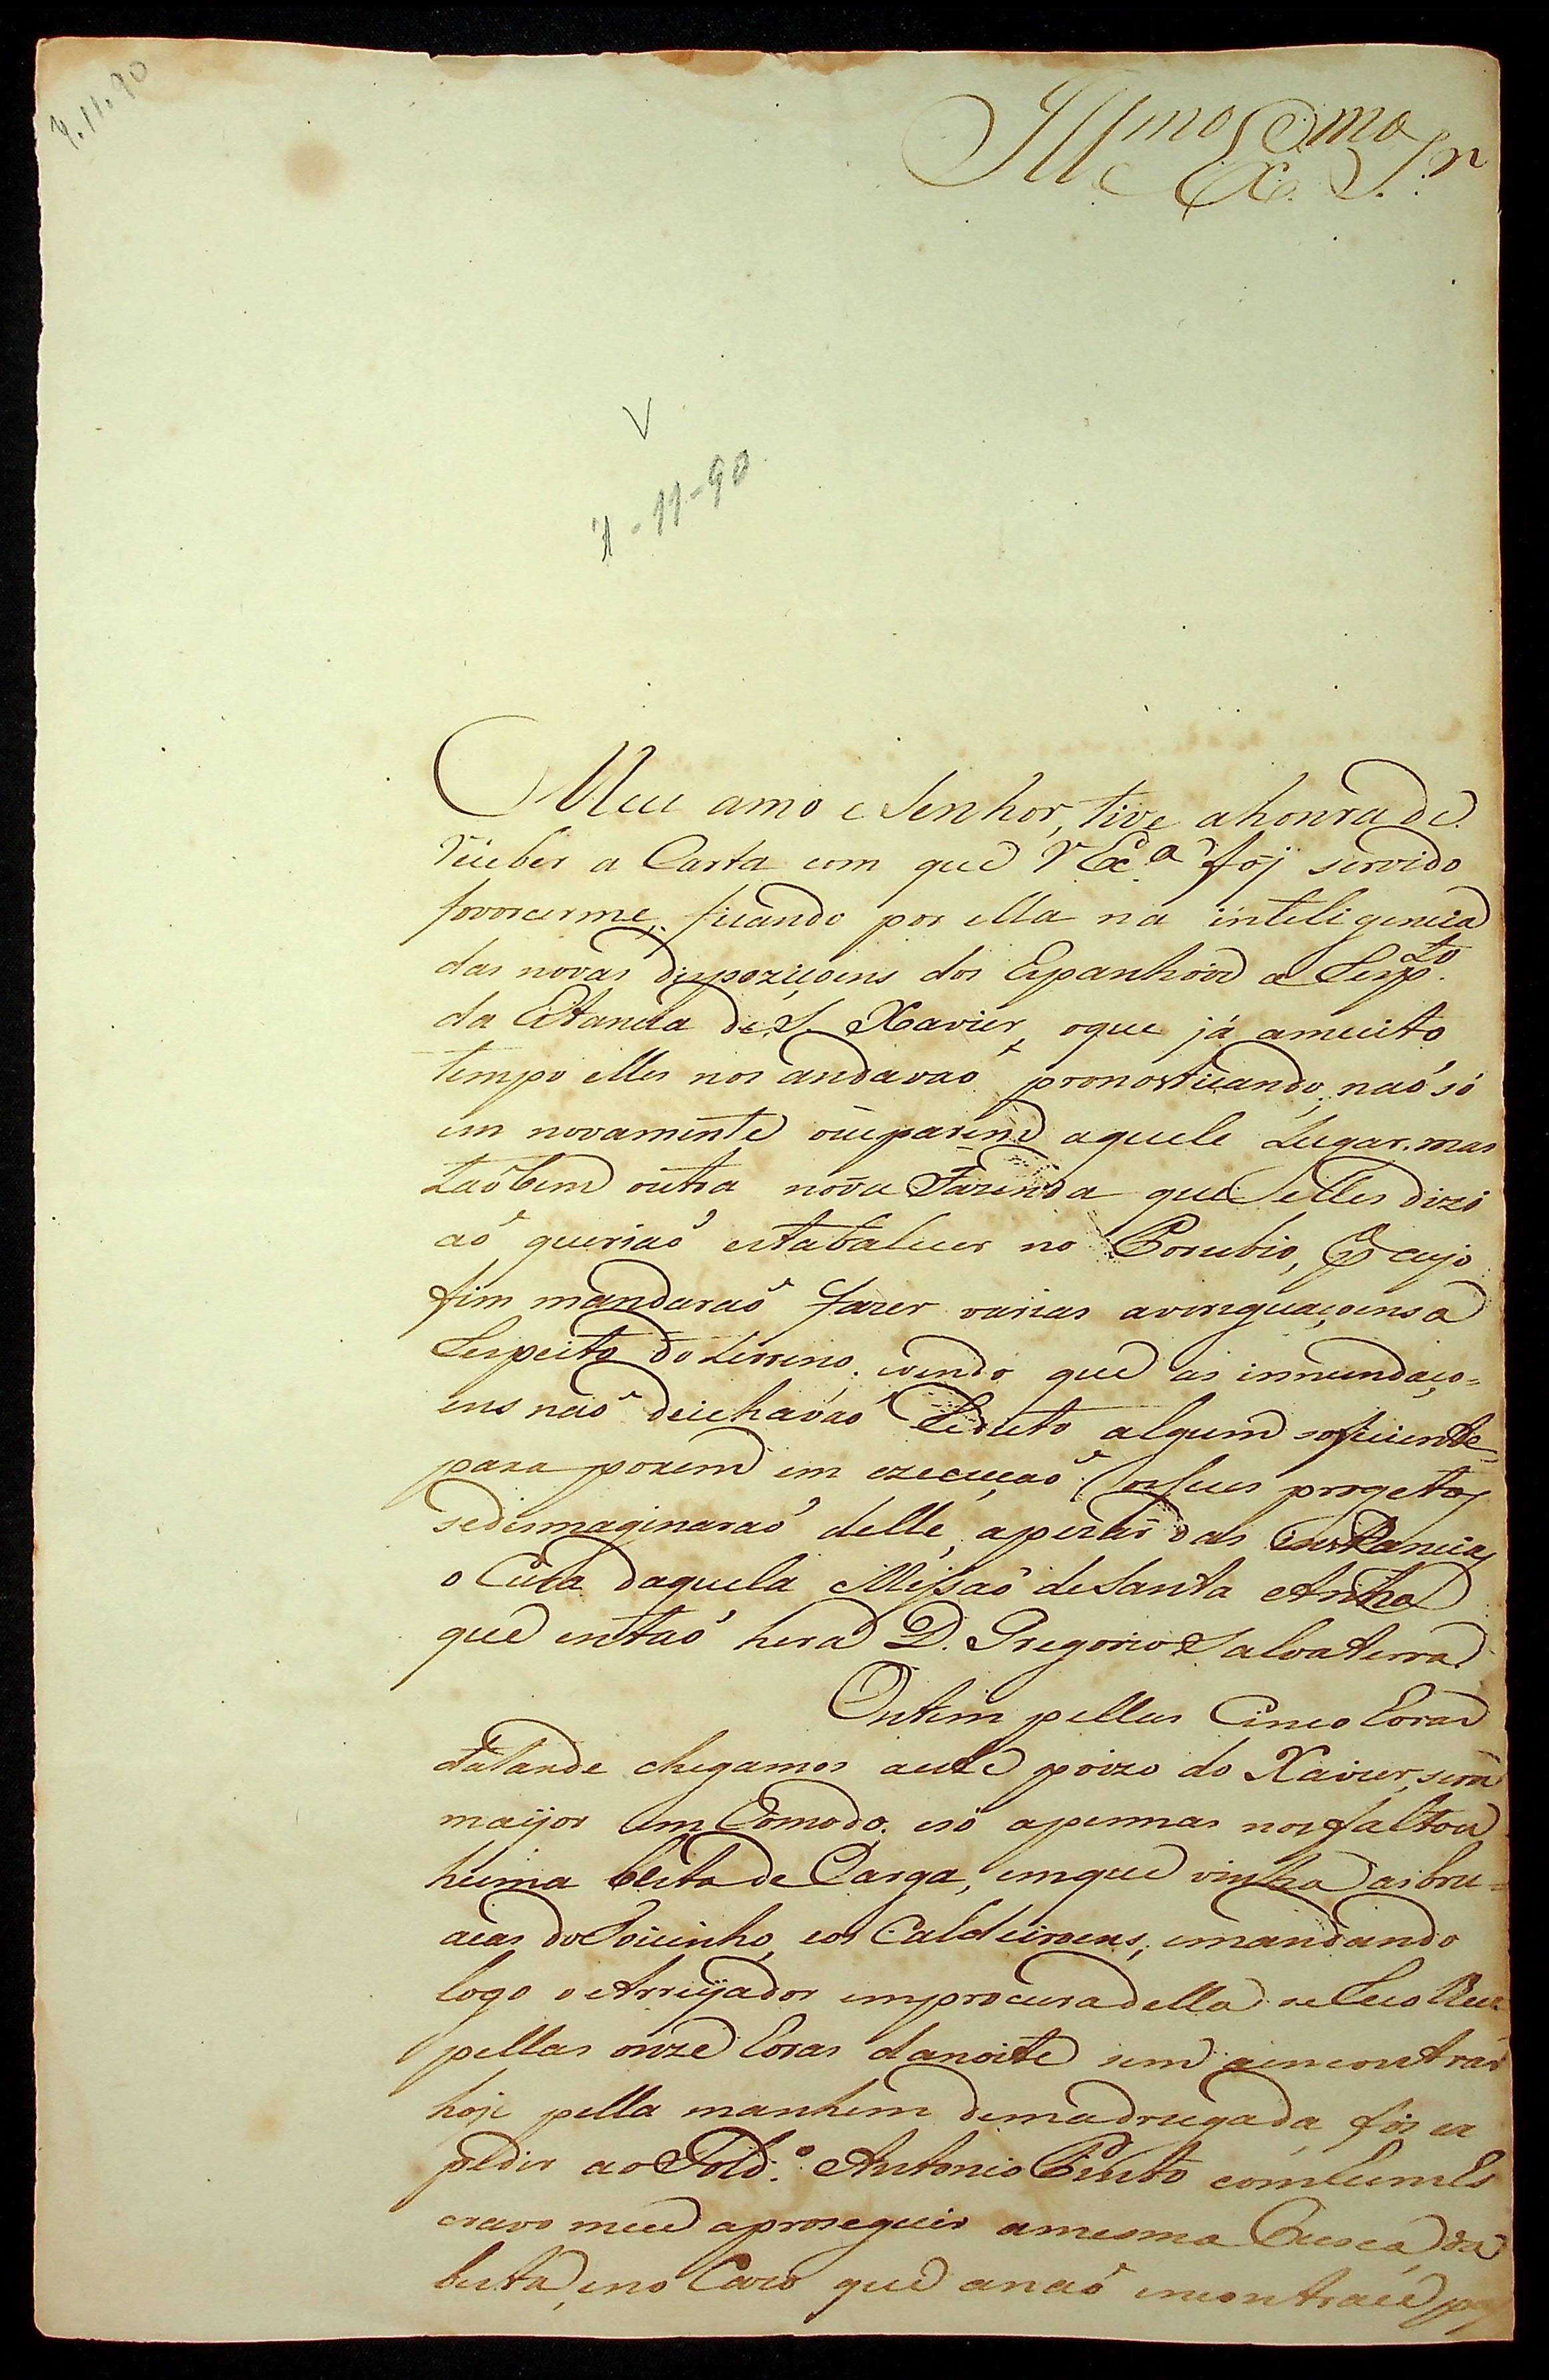 7.11.90
Ill.mo Ex.mo S.r
V
7-11-90
Meu amo e Senhor, tive ahonra de
receber a Carta com que V Ex.ª foi servido
fovorcerme, ficando por ella na inteligencia
das novas dispoziçoens dos Espanhoes a Resp.to
da Estancia de S. Xavier, oque já amuito
tempo elles nos andavaõ pronosticando, naõ só
em novamente ocuparem aquele Lugar, mas
taõbem outra nova Fazenda que elles dizi
aõ queriaõ estabalecer no Corubio, p cujo
fim mandaraõ fazer varias averiguaçoens a
Respeito do terreno, evendo que as innundaço=
ens naõ deichavaõ Reduto algum soficiente
para porem em execuçaõ os seus progetos
sedesmaginaraõ delle, apezar das instancias
o Cura daquela Missaõ de Santa Anna
que entaõ hera D. Gregorio Salvaterra.
Ontem pellas Cinco horas
datarde chegamos aeste poizo do Xavier, sem
maijor emComodo, esó apennas nos faltou
huma besta de Carga, emque vinha as bru=
acas do Toicinho, eos Caldeiroens, emandando
logo o Arrijador emprocuradella se Recolheu
pellas onze horas danoite sem aencontrar
hoje pella manhem demadrugada fis ex
pedir ao Sold.º Antonio Pinto comhumEs
cravo meu aproseguir amesma Busca da
besta, eno Cazo que anaõ encontrace